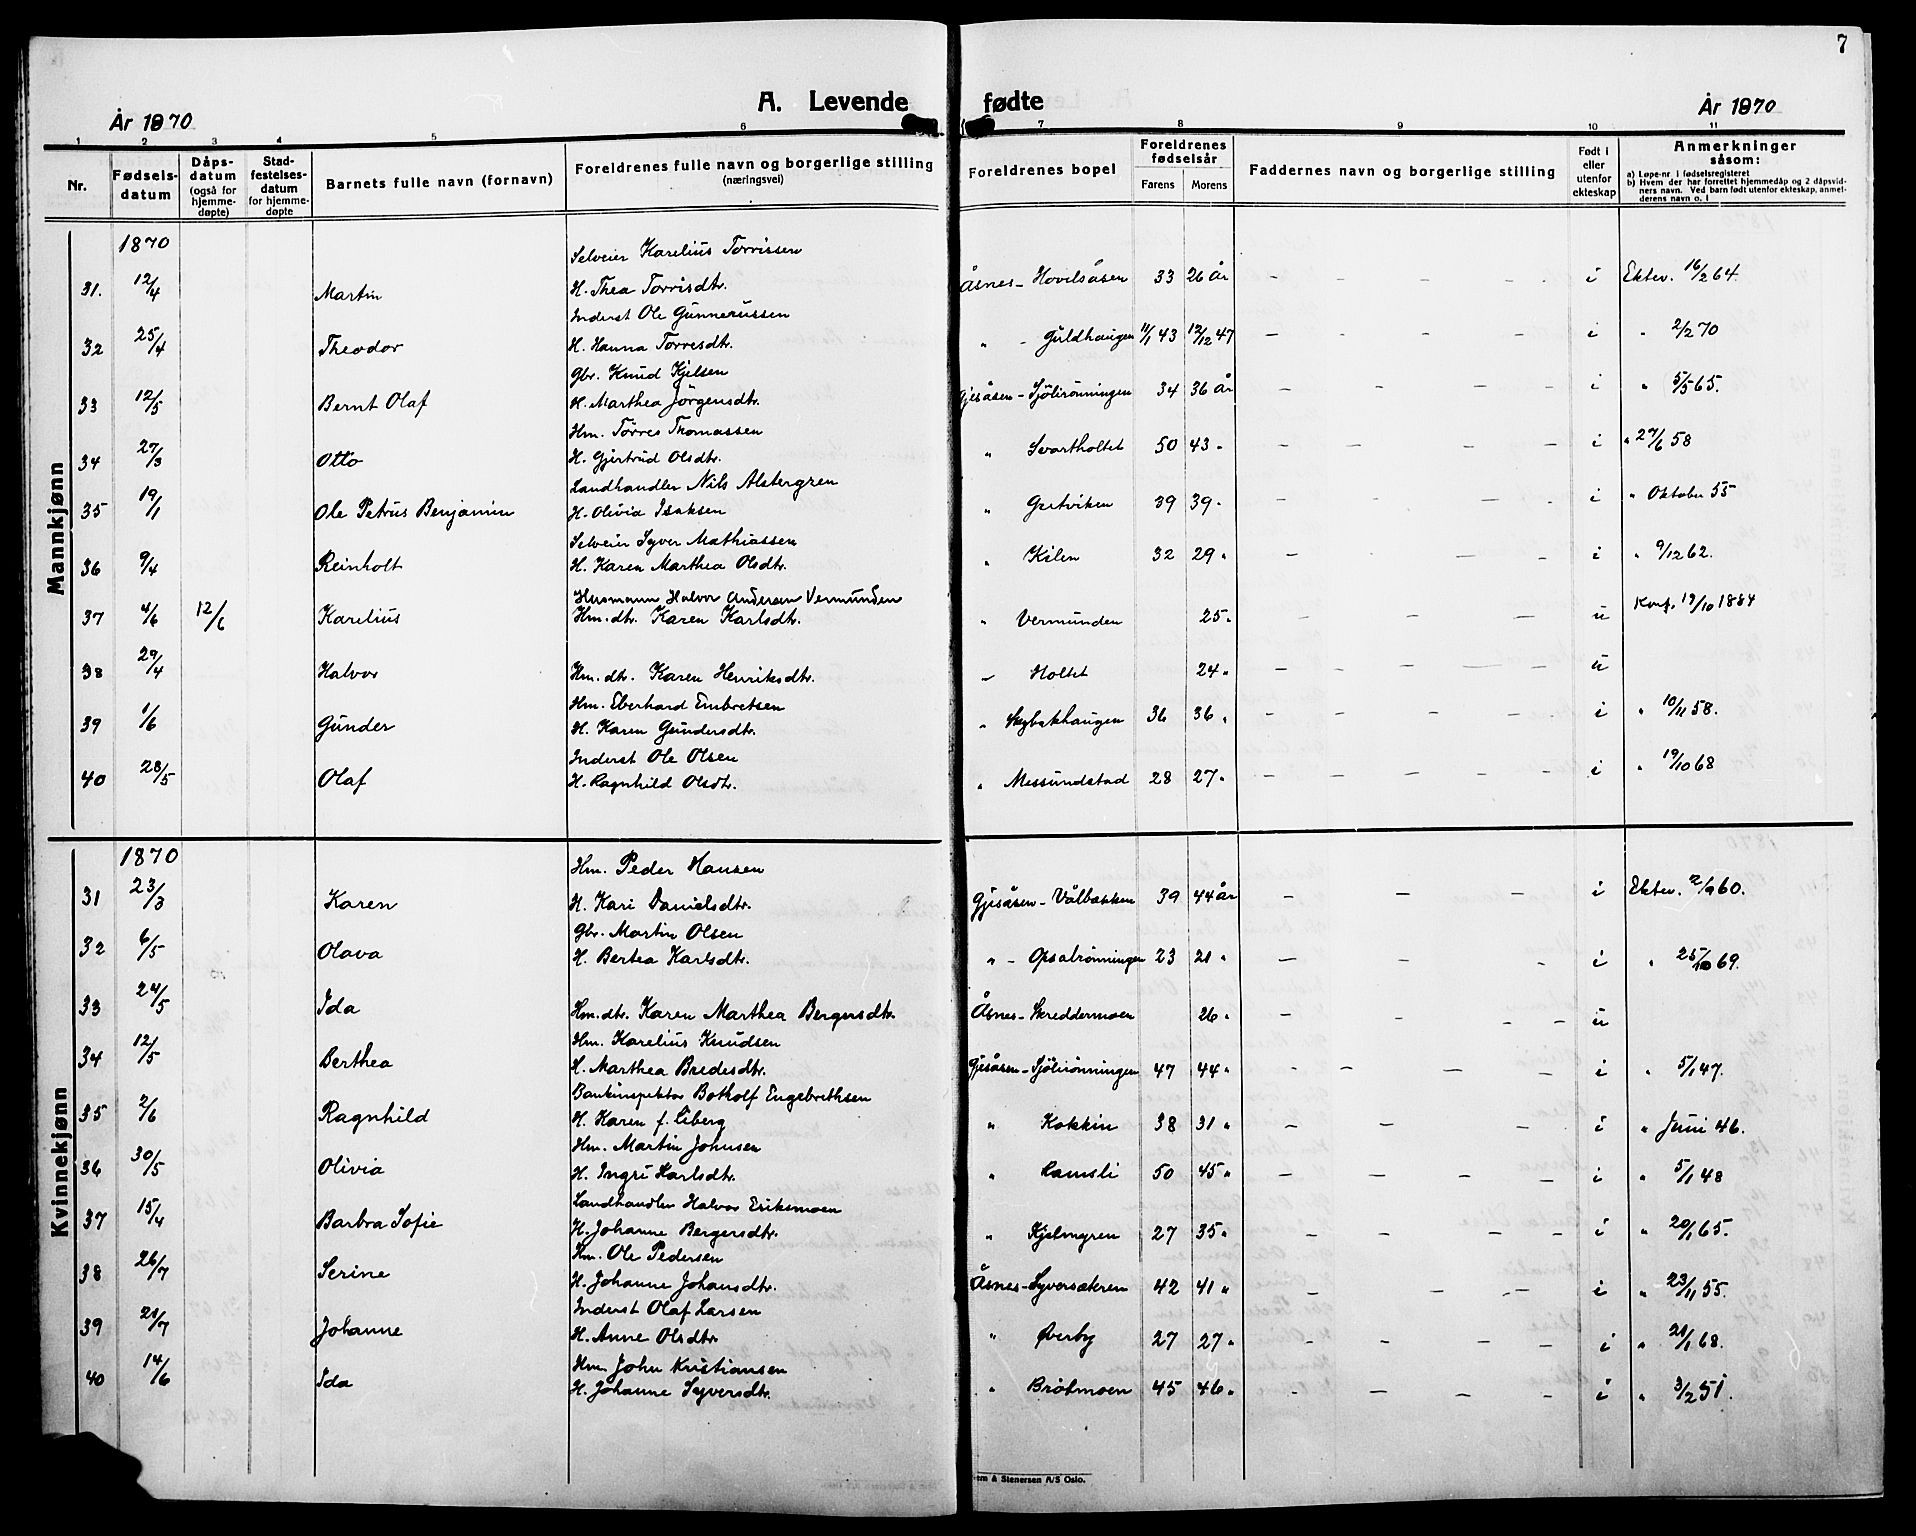 7
A. Levende fødte
År 1870
År 1870
1 2 3 4 5 6 7 8 9 10 11
Nr.
Fødsels-datum
Dåps-datum (også for hjemme-døpte)
Stad-festelses-datum for hjemme-døpte
Barnets fulle navn (fornavn)
Foreldrenes fulle navn og borgerlige stilling (næringsvei)
Foreldrenes bopel
Foreldrenes fødselsår
Farens Morens
Faddernes navn og borgerlige stilling
Født i eller utenfor ekteskap
Anmerkninger såsom:
a) Løpe-nr. i fødselsregisteret
b) Hvem der har forrettet hjemmedåp og 2 dåpsvid-
ners navn. Ved barn født utenfor ekteskap, anmel-
derens navn o. l
Mannkjønn
1870
Selveier Karelius Torrissen
31. 12/4 Martin H. Thea Torrisdtr. Åsnes - Hovilsåsen 33 26 år - - - - i Ektev. 16/2 64.
Inderst Ole Gunnerussen
32 25/4 Theodor H. Hanna Torresdtr. " - Guldhaugen 11/1 43 12/12 47 - - - - i " 2/2 70
Gbr. Knud Kjelsen
33 12/5 Bernt Olaf H. Marthea Jörgensdtr. Gjesåsen - Sjölirönningen 34 36 år - - - - i " 5/5 65.
Hm. Törres Thomassen
34 27/3 Otto H. Gjertrud Olsdtr. " Svartholtet 50 43 " - - - - i " 29/6 58
Landhandler Nils Alstergren
35 19/1 Ole Petrus Benjamin H. Olivia Isaksen " Gertviken 39 39 " - - - - i " Oktober 55
Selveier Syver Mathiassen
36 9/4 Reinholt H. Karen Marthea Olsdtr. " Kilen 32 29 " - - - i " 9/12 62.
Husmann Halvor Andersen Vermunden
37 4/6 12/6 Karelius Hm. dtr. Karen Karlsdtr. " Vermunden 25 " - - - - u Konf. 19/10 1884
38 29/4 Halvor Hm. dtr. Karen Henriksdtr. " Holtet 24 " - - - - u
Hm. Eberhard Embretsen
39 1/6 Gunder H. Karen Gundersdtr. " Skybakhaugen 36 36 " - - - - i " 10/11 58.
Inderst Ole Olsen
40 28/5 Olaf H. Ragnhild Olsdtr. " Messundstad 28 27 " - - - - i " 19/10 68
Kvinnekjønn
1870
Hm. Peder Hansen
31 23/3 Karen H. Kari Danielsdtr. Gjesåsen - Vålbakken 39 44 år - - - i Ektev. 2/9 60.
Gbr. Martin Olsen
32 6/5 Olava H. Bertea Karlsdtr. " - Opsalrönningen 23 21 " - - - - i " 25/10 69.
33 24/5 Ida Hm. dtr. Karen Marthea Bergersdtr. Åsnes - Skreddermoen 26 " - - - - u
Hm. Karelius Knudsen
34 12/5 Berthea H. Marthea Bredesdtr. Gjesåsen - Sjölirönningen 47 44 " - - - - i " 5/1 47.
Bankinspektör Botholf Engebrethsen
35 2/6 Ragnhild H. Karen f. Liberg " Kokkin 38 31 " - - - - i " Juni 46.
Hm. Martin Johnsen
36 30/5 Olivia H. Ingri Karlsdtr. " Ramsli 50 45 " - - - - i " 5/1 48
Landhandler Halvor Eriksmoen
37 15/4 Barbra Sofie H. Johanne Bergersdtr. " Kjelmyren 27 35 " - - - - i " 20/1 65.
Hm. Ole Pedersen
38 26/7 Serine H. Johanne Johansdtr. Åsnes - Syversæteren 42 41 " - - - - i " 23/11 55.
Inderst Olaf Larsen
39 21/7 Johanne H. Anne Olsdtr. " Øverby 27 27 " - - - - i " 21/1 68.
Hm. John Kristiansen
40 14/6 Ida H. Johanne Syversdtr. " Bråtmoen 45 46 " - - - - i " 3/2 51.
em & Stenersen A/S Oslo.